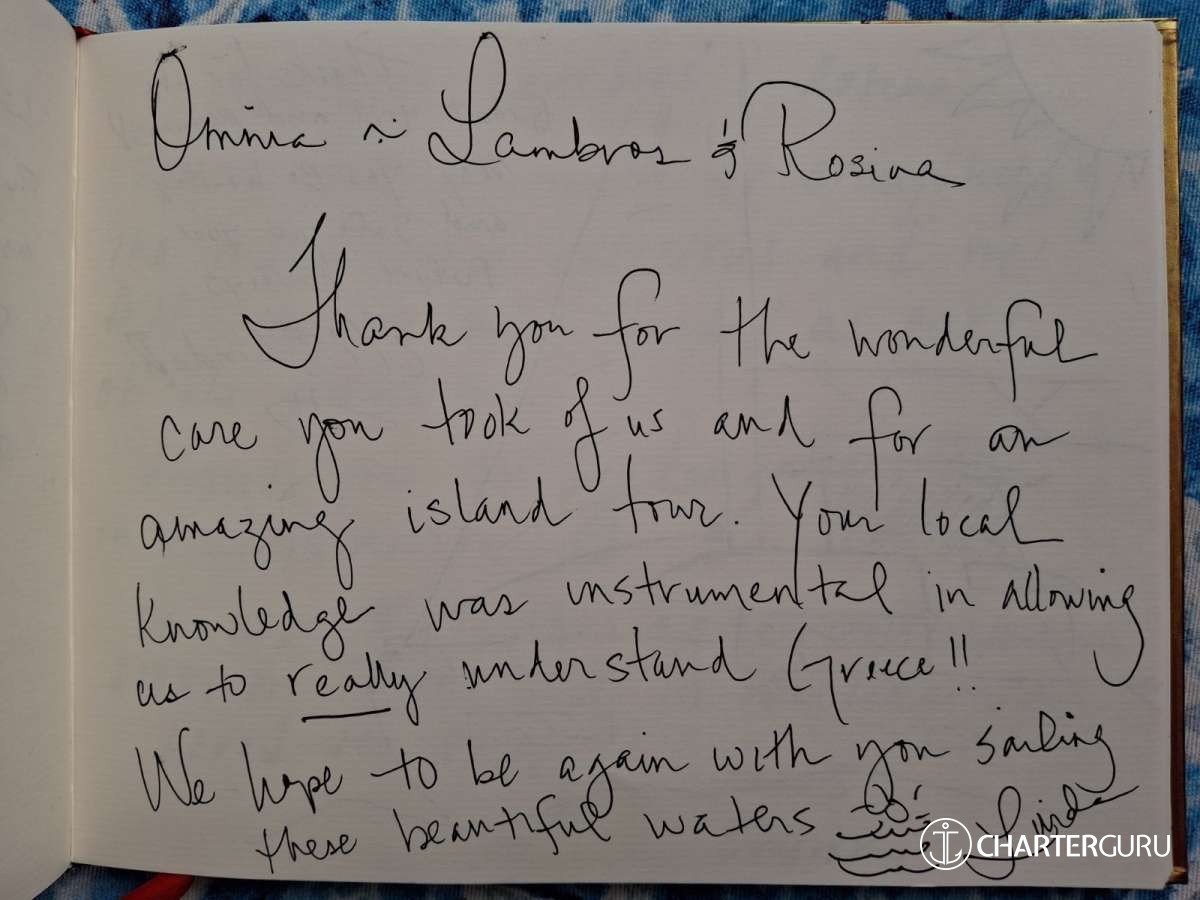 Omnia ~ Lambros & Rosina
Thank you for the wonderful
care you took of us and for an
amazing island tour. Your local
knowledge was instrumental in allowing
us to really understand Greece!!
We hope to be again with you sailing
these beautiful waters
CHARTERGURU